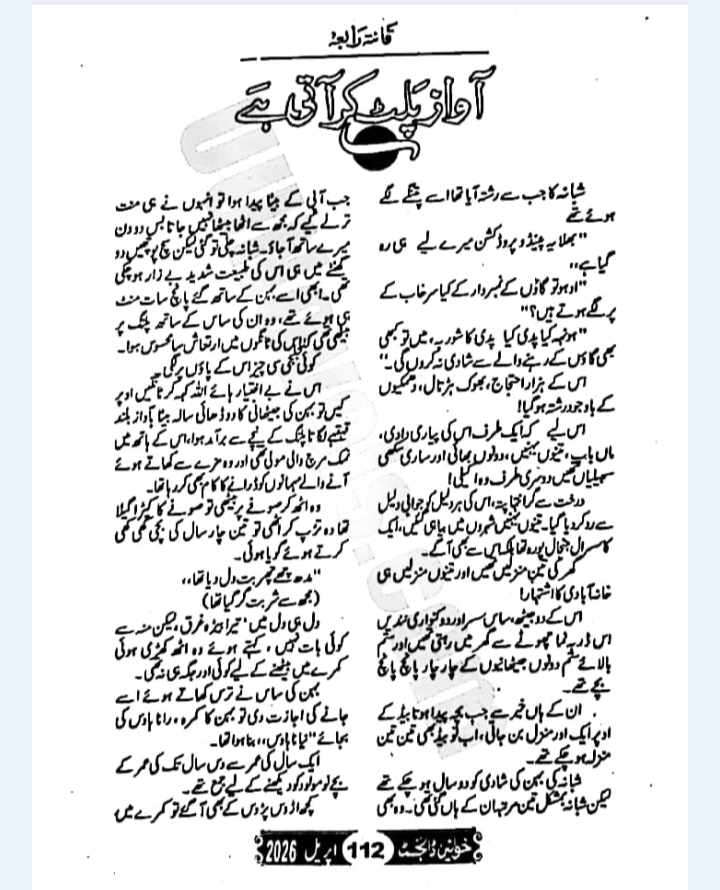 قانتہ رابعہ
آواز پلٹ کر آتی ہے
شبانہ کا جب سے رشتہ آیا تھا اسے پتنگے لگے
ہوئے تھے
"بھلا یہ پینڈو پروڈکشن میرے لیے ہی رہ
گیا ہے،،
"اوہو تو گاؤں کے نمبردار کے کیا سرخاب کے
پر لگے ہوتے ہیں؟"
"ہونہہ کیا پدی کیا پدی کا شوربہ، میں تو کبھی
بھی گاؤں کے رہنے والے سے شادی نہ کروں گی۔"
اس کے ہزار احتجاج، بھوک ہڑتال، دھمکیوں
کے باوجود رشتہ ہو گیا!
اس لیے کہ ایک طرف اس کی پیاری دادی،
ماں باپ، تینوں بہنیں، دونوں بھائی اور ساری سکھی
سہیلیاں تھیں دوسری طرف وہ اکیلی!
درخت سے گرا تنہا پتہ، اس کی ہر دلیل کو جوابی دلیل
سے رد کر دیا گیا۔ تینوں بہنیں شہروں میں بیاہی گئیں، ایک
کا سسرال جنجال پورہ تھا بلکہ اس سے بھی آگے۔
گھر کی تین منزلیں تھیں اور تینوں منزلیں ہی
خانہ آبادی کا اشتہار!
اس کے دو جیٹھ، ساس سسر اور دو کنواری نندیں
اس ڈربہ نما چھوٹے سے گھر میں رہتی تھیں اور ستم
بالائے ستم دونوں جیٹھانیوں کے چار چار پانچ پانچ
بچے تھے۔
ان کے ہاں خیر سے جب بچہ پیدا ہوتا بیڈ کے
اوپر ایک اور منزل بن جاتی، اب تو بیڈ بھی تین تین
منزلہ ہو چکے تھے۔
شبانہ کی بہن کی شادی کو دو سال ہو چکے تھے
لیکن شبانہ بمشکل تین مرتبہ ان کے ہاں گئی تھی۔ وہ بھی
جب آپی کے بیٹا پیدا ہوا تو انہوں نے ہی منت
ترلے کیے کہ مجھ سے اٹھا بیٹھا نہیں جاتا بس دو دن
میرے ساتھ آ جاؤ۔ شبانہ چلی تو گئی لیکن سچ پوچھیں دو
گھنٹے میں ہی اس کی طبیعت شدید بے زار ہو چکی
تھی۔ ابھی اسے بہن کے ساتھ گئے پانچ سات منٹ
ہی ہوئے تھے، وہ ان کی ساس کے ساتھ پلنگ پر
بیٹھی تھی کہ اس کی ٹانگوں میں ارتعاش سا محسوس ہوا۔
کوئی نکی سی چیز اس کے پاؤں پر لگی۔
اس نے بے اختیار ہائے اللہ کہہ کر ٹانگیں اوپر
کیں تو بہن کی جیٹھانی کا دو ڈھائی سالہ بیٹا بآواز بلند
قہقہے لگاتا پلنگ کے نیچے سے برآمد ہوا، اس کے ہاتھ میں
نمک مرچ والی مولی تھی اور وہ مزے سے کھاتے ہوئے
آنے والے مہمانوں کو ڈرانے کا کام بھی کر رہا تھا۔
وہ اٹھ کر صوفے پر بیٹھی تو صوفے کا کپڑا گیلا
تھا وہ تڑپ کر اٹھی تو تین چار سال کی بچی کھی کھی
کرتے ہوئے گویا ہوئی۔
"مدھ چھے چربت دل دیا تھا،،
(مجھ سے شربت گر گیا تھا)
دل ہی دل میں 'تیرا بیڑہ غرق، لیکن منہ سے
کوئی بات نہیں، کہتے ہوئے وہ اٹھ کھڑی ہوئی
کمرے میں بیٹھنے کے لیے کوئی اور جگہ ہی نہ تھی۔
بہن کی ساس نے ترس کھاتے ہوئے اسے
جانے کی اجازت دی تو بہن کا کمرہ، رانا ہاؤس کی
بجائے "نیانا ہاؤس،، بنا ہوا تھا۔
ایک سال کی عمر سے دس سال تک کی عمر کے
بچے نومولود کو دیکھنے کے لیے جمع تھے۔
کچھ اڑوس پڑوس کے بھی آ گئے تو کمرے میں
خواتین ڈائجسٹ 112 اپریل 2026